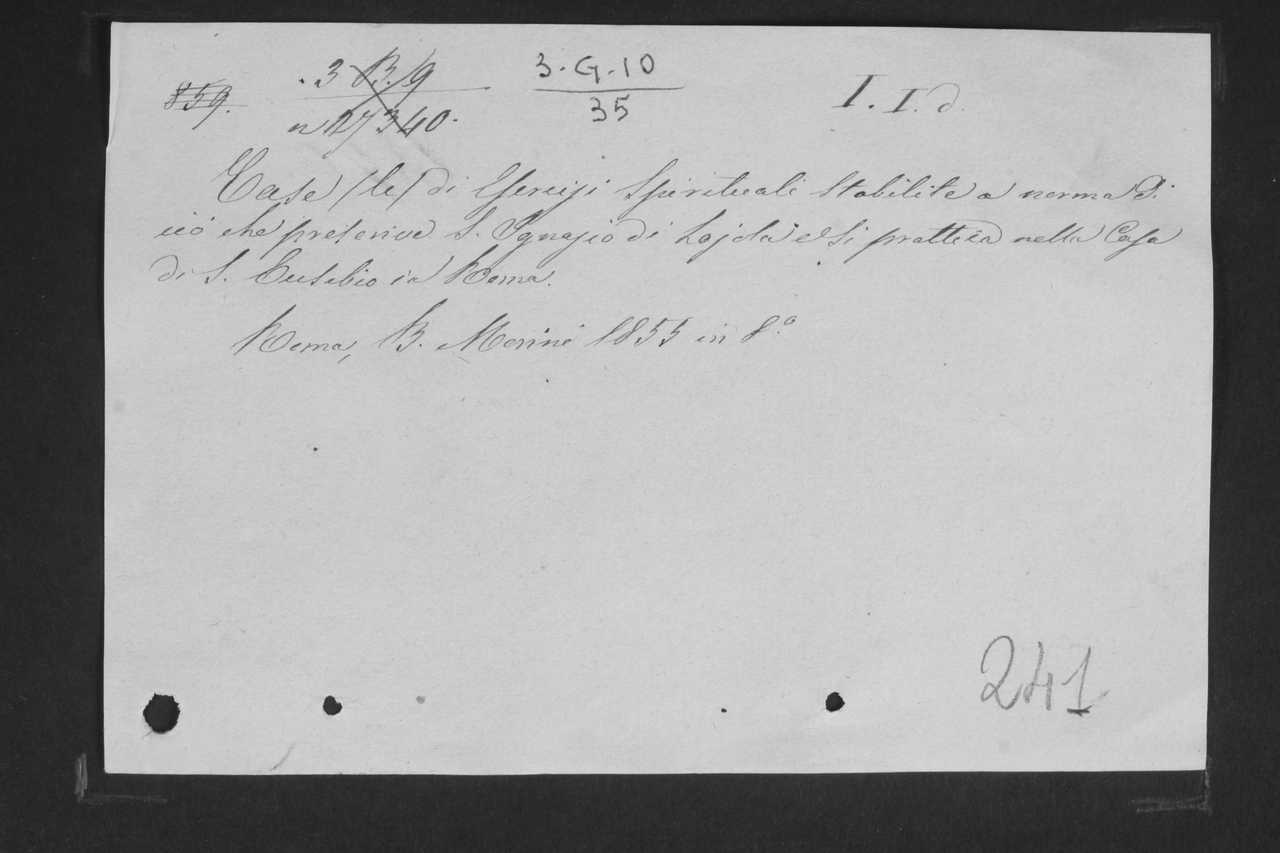 859. 3 B. 9 3-G-10 I. I. d.
n 27340. 35
Case (le) di Esercizj Spirituali stabilite a norma di
ciò che prescrive S. Ignazio di Lojola e si prattica nella Casa
di S. Eusebio in Roma.
Roma, B. Morini 1855 in 8.º
241